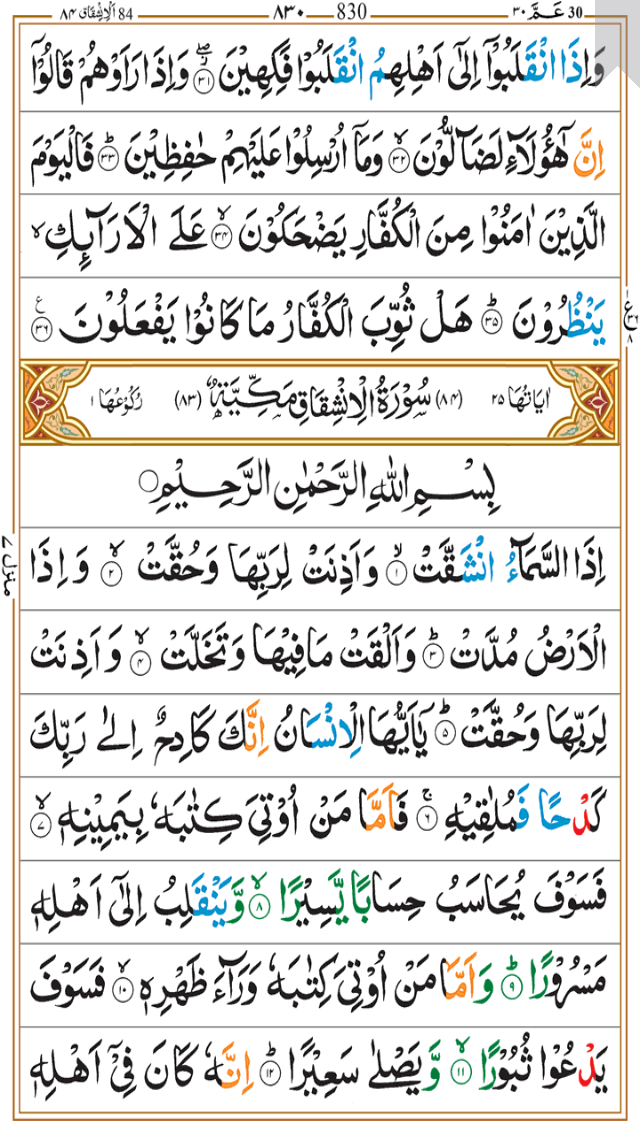 اَلْاِنْشِقَاق 84 ٨٤ 830 ٨٣٠ 30 عَمَّ ٣٠
وَاِذَا انْقَلَبُوْۤا اِلٰۤى اَهْلِهِمُ انْقَلَبُوْا فَكِهِيْنَ ۖ ٣١ وَاِذَا رَاَوْهُمْ قَالُوْۤا
اِنَّ هٰۤؤُلَآءِ لَضَآلُّوْنَ ۙ ٣٢ وَمَاۤ اُرْسِلُوْا عَلَيْهِمْ حٰفِظِيْنَ ؕ ٣٣ فَالْيَوْمَ
الَّذِيْنَ اٰمَنُوْا مِنَ الْكُفَّارِ يَضْحَكُوْنَ ۙ ٣٤ عَلَى الْاَرَآئِكِ ۙ
يَنْظُرُوْنَ ؕ ٣٥ هَلْ ثُوِّبَ الْكُفَّارُ مَا كَانُوْا يَفْعَلُوْنَ ٣٦ ع
ع ١ ٣٦ ٨
اٰيَاتُهَا ٢٥ (٨٤) سُوْرَةُ الْاِنْشِقَاقِ مَكِّيَّةٌ (٨٣) رُكُوْعُهَا ١
بِسْمِ اللّٰهِ الرَّحْمٰنِ الرَّحِيْمِ
اِذَا السَّمَآءُ انْشَقَّتْ ۙ ١ وَاَذِنَتْ لِرَبِّهَا وَحُقَّتْ ۙ ٢ وَاِذَا
منزل ٧
الْاَرْضُ مُدَّتْ ؕ ٣ وَاَلْقَتْ مَا فِيْهَا وَتَخَلَّتْ ۙ ٤ وَاَذِنَتْ
لِرَبِّهَا وَحُقَّتْ ؕ ٥ يٰۤاَيُّهَا الْاِنْسَانُ اِنَّكَ كَادِحٌ اِلٰى رَبِّكَ
كَدْحًا فَمُلٰقِيْهِ ۚ ٦ فَاَمَّا مَنْ اُوْتِيَ كِتٰبَهٗ بِيَمِيْنِهٖ ۙ ٧
فَسَوْفَ يُحَاسَبُ حِسَابًا يَّسِيْرًا ۙ ٨ وَّيَنْقَلِبُ اِلٰۤى اَهْلِهٖ
مَسْرُوْرًا ؕ ٩ وَاَمَّا مَنْ اُوْتِيَ كِتٰبَهٗ وَرَآءَ ظَهْرِهٖ ۙ ١٠ فَسَوْفَ
يَدْعُوْا ثُبُوْرًا ۙ ١١ وَّيَصْلٰى سَعِيْرًا ؕ ١٢ اِنَّهٗ كَانَ فِيْۤ اَهْلِهٖ